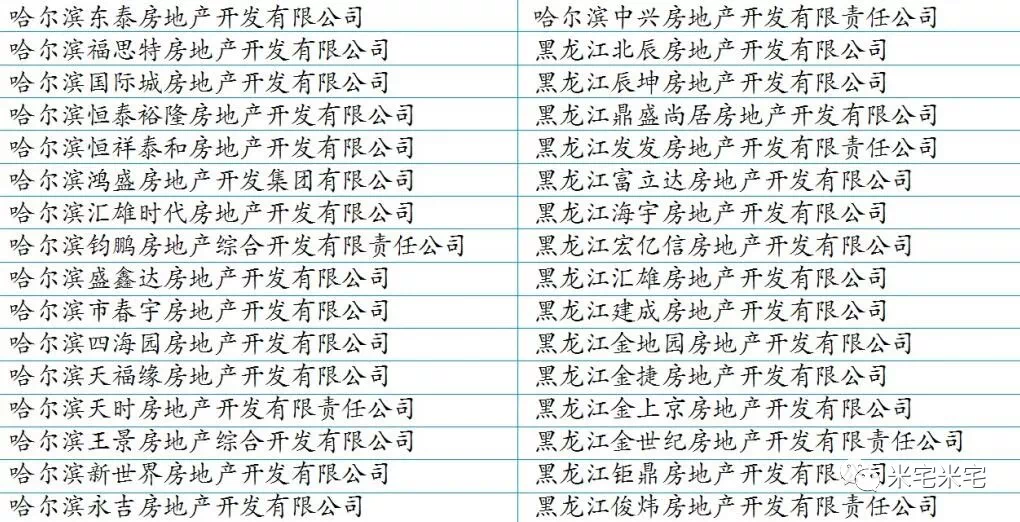 哈尔滨东泰房地产开发有限公司
哈尔滨中兴房地产开发有限责任公司
哈尔滨福思特房地产开发有限公司
黑龙江北辰房地产开发有限公司
哈尔滨国际城房地产开发有限公司
黑龙江辰坤房地产开发有限公司
哈尔滨恒泰裕隆房地产开发有限公司
黑龙江鼎盛尚居房地产开发有限公司
哈尔滨恒祥泰和房地产开发有限公司
黑龙江发发房地产开发有限责任公司
哈尔滨鸿盛房地产开发集团有限公司
黑龙江富立达房地产开发有限公司
哈尔滨汇雄时代房地产开发有限公司
黑龙江海宇房地产开发有限公司
哈尔滨钧鹏房地产综合开发有限责任公司
黑龙江宏亿信房地产开发有限公司
哈尔滨盛鑫达房地产开发有限公司
黑龙江汇雄房地产开发有限公司
哈尔滨市春宇房地产开发有限公司
黑龙江建成房地产开发有限公司
哈尔滨四海园房地产开发有限公司
黑龙江金地园房地产开发有限公司
哈尔滨天福缘房地产开发有限公司
黑龙江金捷房地产开发有限公司
哈尔滨天时房地产开发有限责任公司
黑龙江金上京房地产开发有限公司
哈尔滨王景房地产综合开发有限公司
黑龙江金世纪房地产开发有限责任公司
哈尔滨新世界房地产开发有限公司
黑龙江钜鼎房地产开发有限公司
米宅米宅
哈尔滨永吉房地产开发有限公司
黑龙江俊炜房地产开发有限责任公司